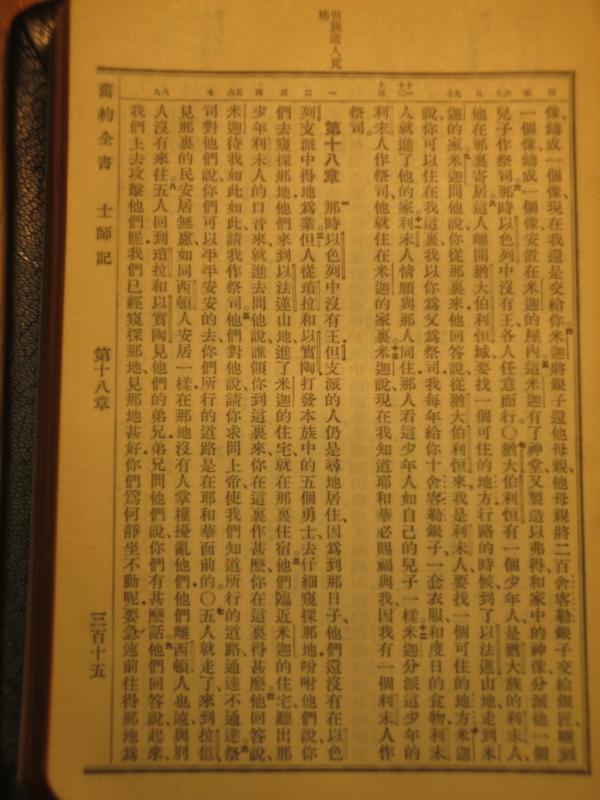 但族遣人覓
地
像鑄成一個像現在我還是交給你米迦將銀子還他母親他母親將二百舍客勒銀子交給銀匠雕刻
一個像鑄成一個像安置在米迦的屋內這米迦有了神堂又製造以弗得和家中的神像分派他一個
兒子作祭司那時以色列中沒有王各人任意而行〇猶大伯利恒有一個少年人是猶大族的利未人
他在那裏寄居這人離開猶大伯利恒城要找一個可住的地方行路的時候到了以法蓮山地走到米
迦的家米迦問他說你從那裏來他回答說從猶大伯利恒來我是利未人要找一個可住的地方米迦
說你可以住在我這裏我以你為父為祭司我每年給你十舍客勒銀子一套衣服和度日的食物利未
人就進了他的家利未人情願與那人同住那人看這少年人如自己的兒子一樣米迦分派這少年的
利未人作祭司他就住在米迦的家裏米迦說現在我知道耶和華必賜福與我因我有一個利未人作
祭司
第十八章 那時以色列中沒有王但支派的人仍是尋地居住因為到那日子他們還沒有在以色
列支派中得地為業但人從瑣拉和以實陶打發本族中的五個勇士去仔細窺探那地吩咐他們說你
們去窺探那地他們來到以法蓮山地進了米迦的住宅就在那裏住宿他們臨近米迦的住宅聽出那
少年利未人的口音來就進去問他說誰領你到這裏來你在這裏作甚麼你在這裏得甚麼他回答說
米迦待我如此如此請我作祭司他們對他說請你求問上帝使我們知道所行的道路通達不通達祭
司對他們說你們可以平平安安的去你們所行的道路是在耶和華面前的〇五人就走了來到拉億
見那裏的民安居無慮如同西頓人安居一樣在那地沒有人掌權擾亂他們他們離西頓人也遠與別
人沒有來往五人回到瑣拉和以實陶見他們的弟兄弟兄問他們說你們有甚麼話他們回答說起來
我們上去攻擊他們罷我們已經窺探那地見那地甚好你們為何靜坐不動呢要急速前往得那地為
舊約全書 士師記 第十八章 三百十五